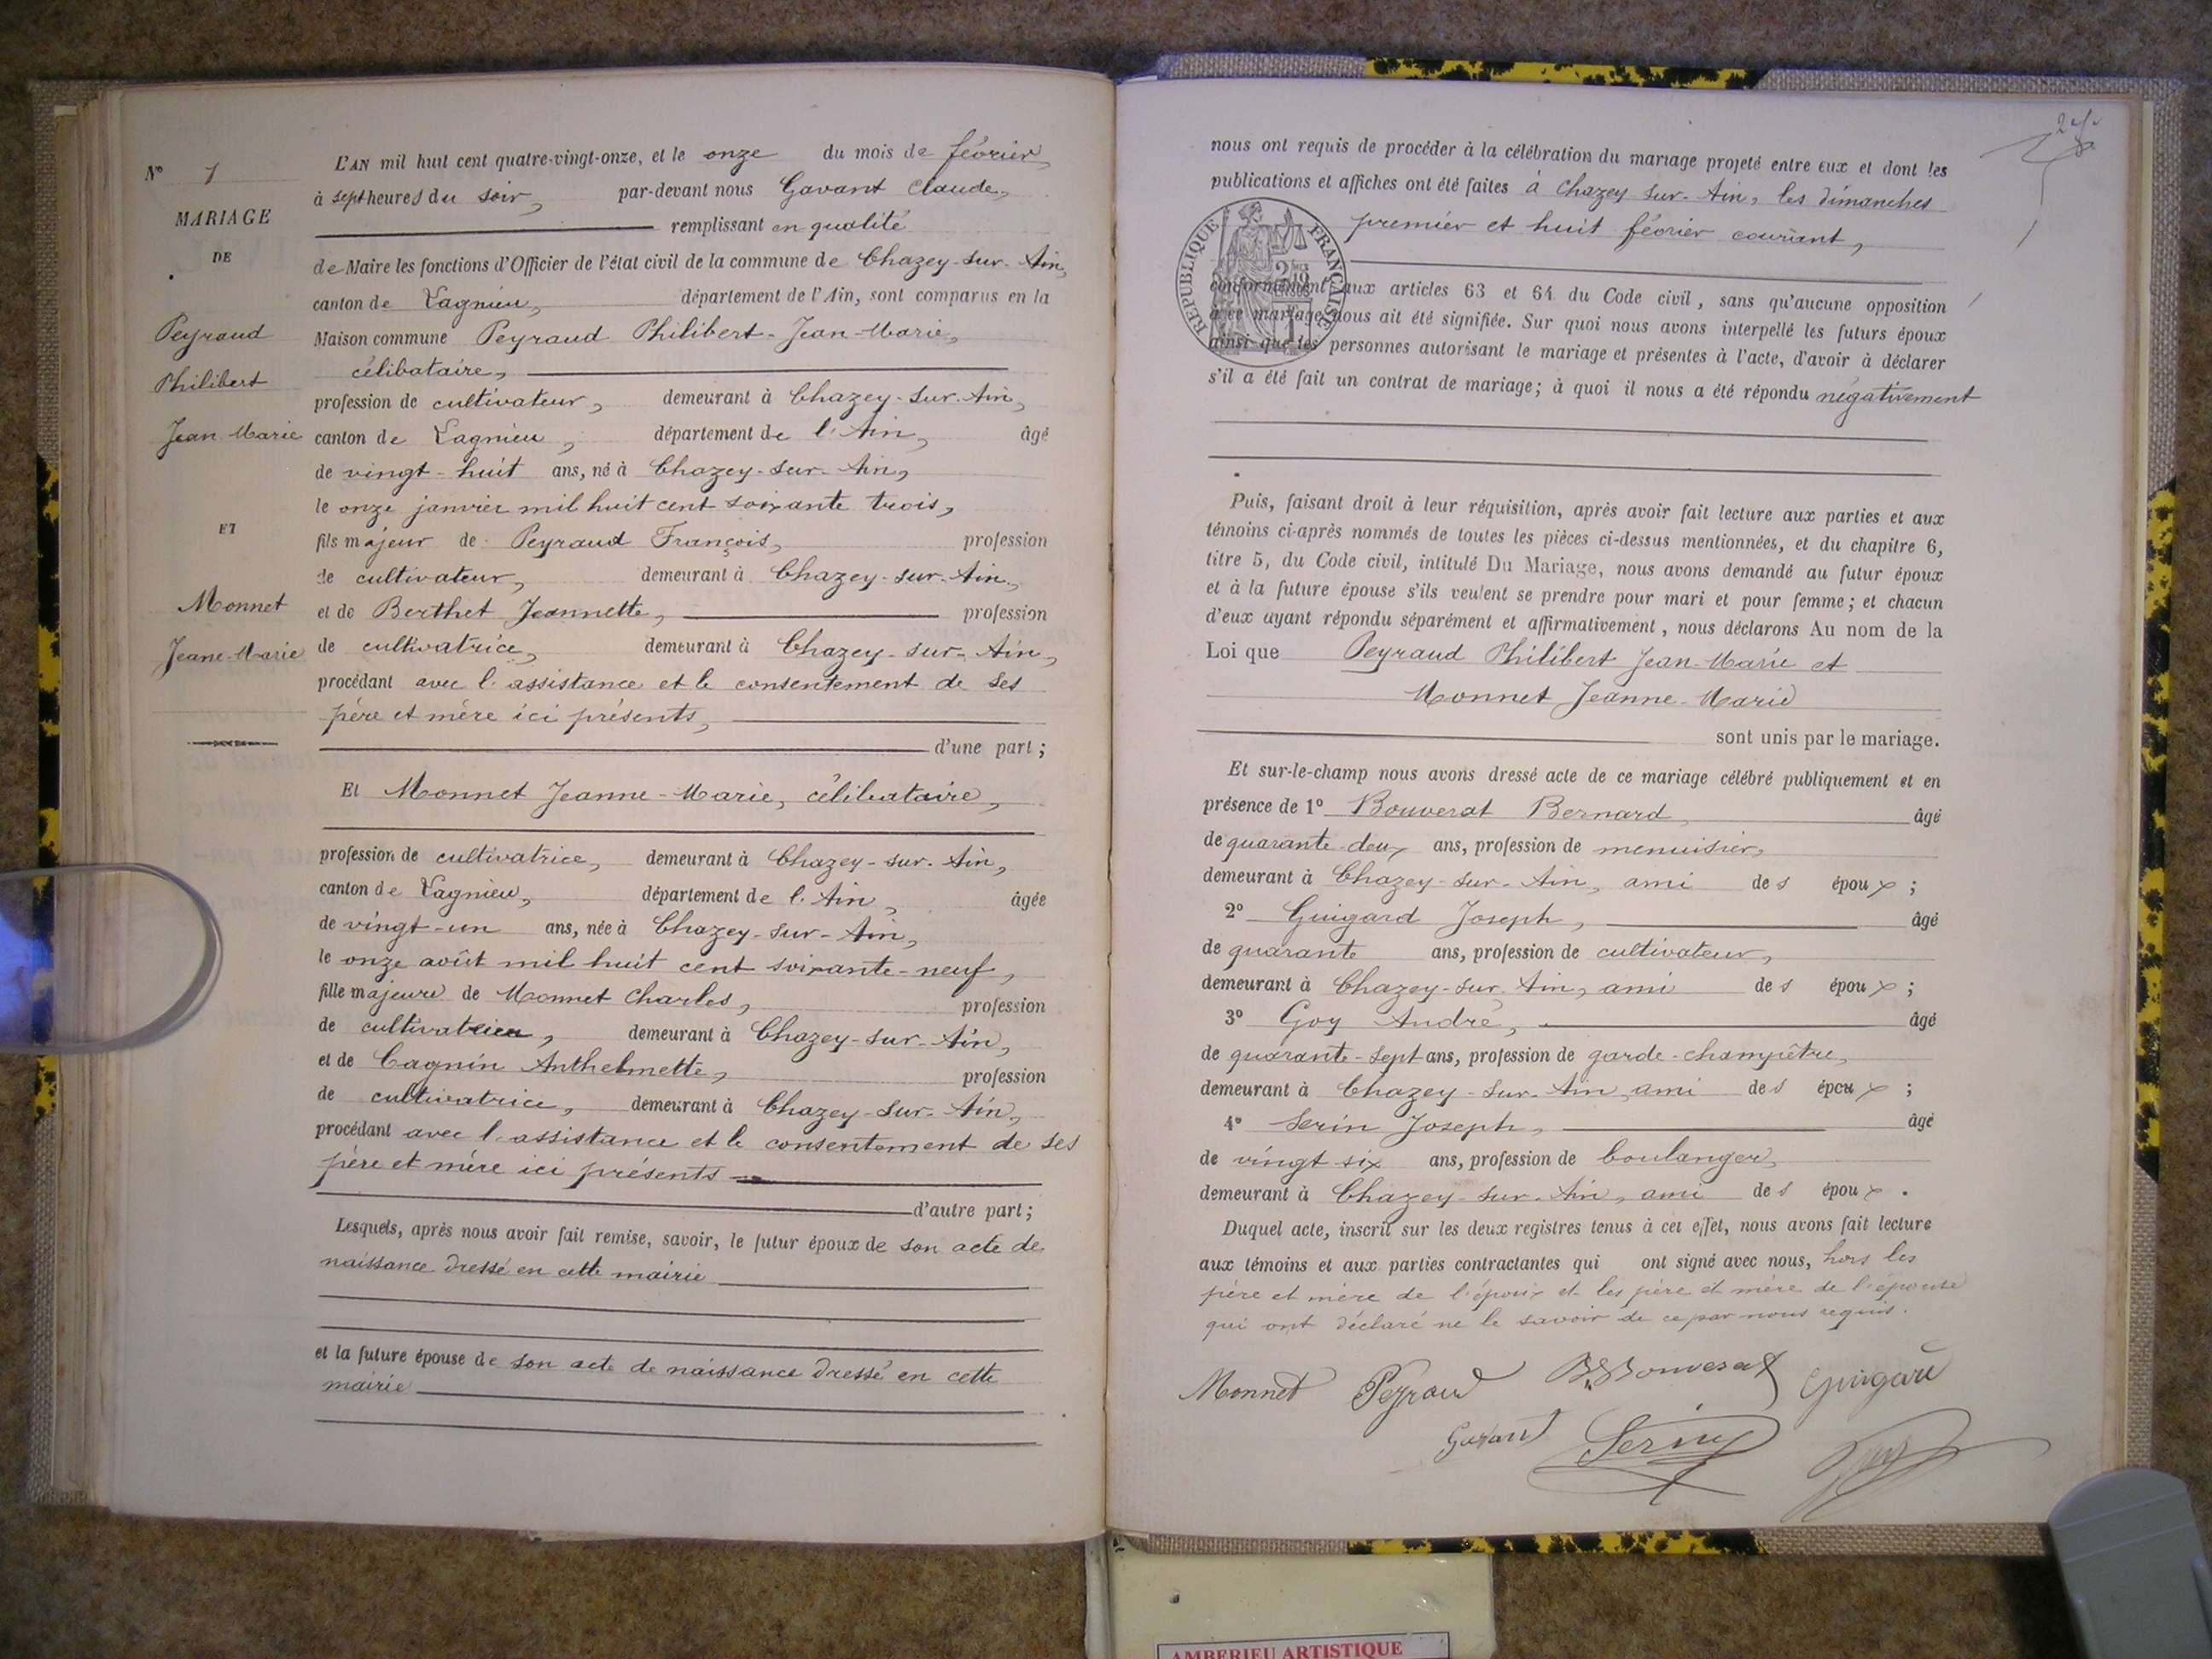 N° 1
MARIAGE
DE
Peyraud
Philibert
Jean Marie
ET
Monnet
Jeane-Marie
L'AN mil huit cent quatre-vingt-onze, et le onze du mois de février,
à sept heures du soir, par-devant nous Gavant Claude,
remplissant en qualité
de Maire les fonctions d'Officier de l'état civil de la commune de Chazey-sur-Ain,
canton de Lagnieu, département de l'Ain, sont comparus en la
Maison commune Peyraud Philibert-Jean-Marie,
célibataire,
profession de cultivateur, demeurant à Chazey-sur-Ain,
canton de Lagnieu, département de l'Ain, âgé
de vingt-huit ans, né à Chazey-sur-Ain,
le onze janvier mil huit cent soixante trois,
fils majeur de Peyraud François, profession
de cultivateur, demeurant à Chazey-sur-Ain,
et de Berthet Jeannette, profession
de cultivatrice, demeurant à Chazey-sur-Ain,
procédant avec l'assistance et le consentement de ses
père et mère ici présents,
d'une part ;
Et Monnet Jeanne-Marie, célibataire,
profession de cultivatrice, demeurant à Chazey-sur-Ain,
canton de Lagnieu, département de l'Ain, âgée
de vingt-un ans, née à Chazey-sur-Ain,
le onze août mil huit cent soixante-neuf,
fille majeure de Monnet Charles, profession
de demeurant à Chazey-sur-Ain,
et de Cagnin Anthelmette, profession
de cultivatrice, demeurant à Chazey-sur-Ain,
procédant avec l'assistance et le consentement de ses
père et mère ici présents
d'autre part ;
Lesquels, après nous avoir fait remise, savoir, le futur époux de son acte de
naissance dressé en cette mairie
et la future épouse de son acte de naissance dressé en cette
mairie
nous ont requis de procéder à la célébration du mariage projeté entre eux et dont les
publications et affiches ont été faites à Chazey-sur-Ain, les dimanches
premier et huit février courant,
REPUBLIQUE FRANÇAISE
conformément aux articles 63 et 64 du Code civil, sans qu'aucune opposition
à ce mariage nous ait été signifiée. Sur quoi nous avons interpellé les futurs époux
ainsi que les personnes autorisant le mariage et présentes à l'acte, d'avoir à déclarer
s'il a été fait un contrat de mariage; à quoi il nous a été répondu négativement
Puis, faisant droit à leur réquisition, après avoir fait lecture aux parties et aux
témoins ci-après nommés de toutes les pièces ci-dessus mentionnées, et du chapitre 6,
titre 5, du Code civil, intitulé Du Mariage, nous avons demandé au futur époux
et à la future épouse s'ils veulent se prendre pour mari et pour femme ; et chacun
d'eux ayant répondu séparément et affirmativement, nous déclarons Au nom de la
Loi que Peyraud Philibert Jean-Marie et
Monnet Jeanne-Marie
sont unis par le mariage.
Et sur-le-champ nous avons dressé acte de ce mariage célébré publiquement et en
présence de 1° Bouverat Bernard, âgé
de quarante-deux ans, profession de menuisier,
demeurant à Chazey-sur-Ain, ami des époux ;
2° Guigard Joseph, âgé
de quarante ans, profession de cultivateur,
demeurant à Chazey-sur-Ain, ami des époux ;
3° Goy André, âgé
de quarante-sept ans, profession de garde-champêtre,
demeurant à Chazey-sur-Ain, ami des époux ;
4° Serin Joseph, âgé
de vingt six ans, profession de boulanger,
demeurant à Chazey-sur-Ain, ami des époux .
Duquel acte, inscrit sur les deux registres tenus à cet effet, nous avons fait lecture
aux témoins et aux parties contractantes qui ont signé avec nous, hors les
père et mère de l'époux et les père et mère de l'épouse
qui ont déclaré ne le savoir de ce par nous requis.
Monnet Peyraud B. Bouverat Guigard
Gavant Serin Goy
AMBERIEU ARTISTIQUE